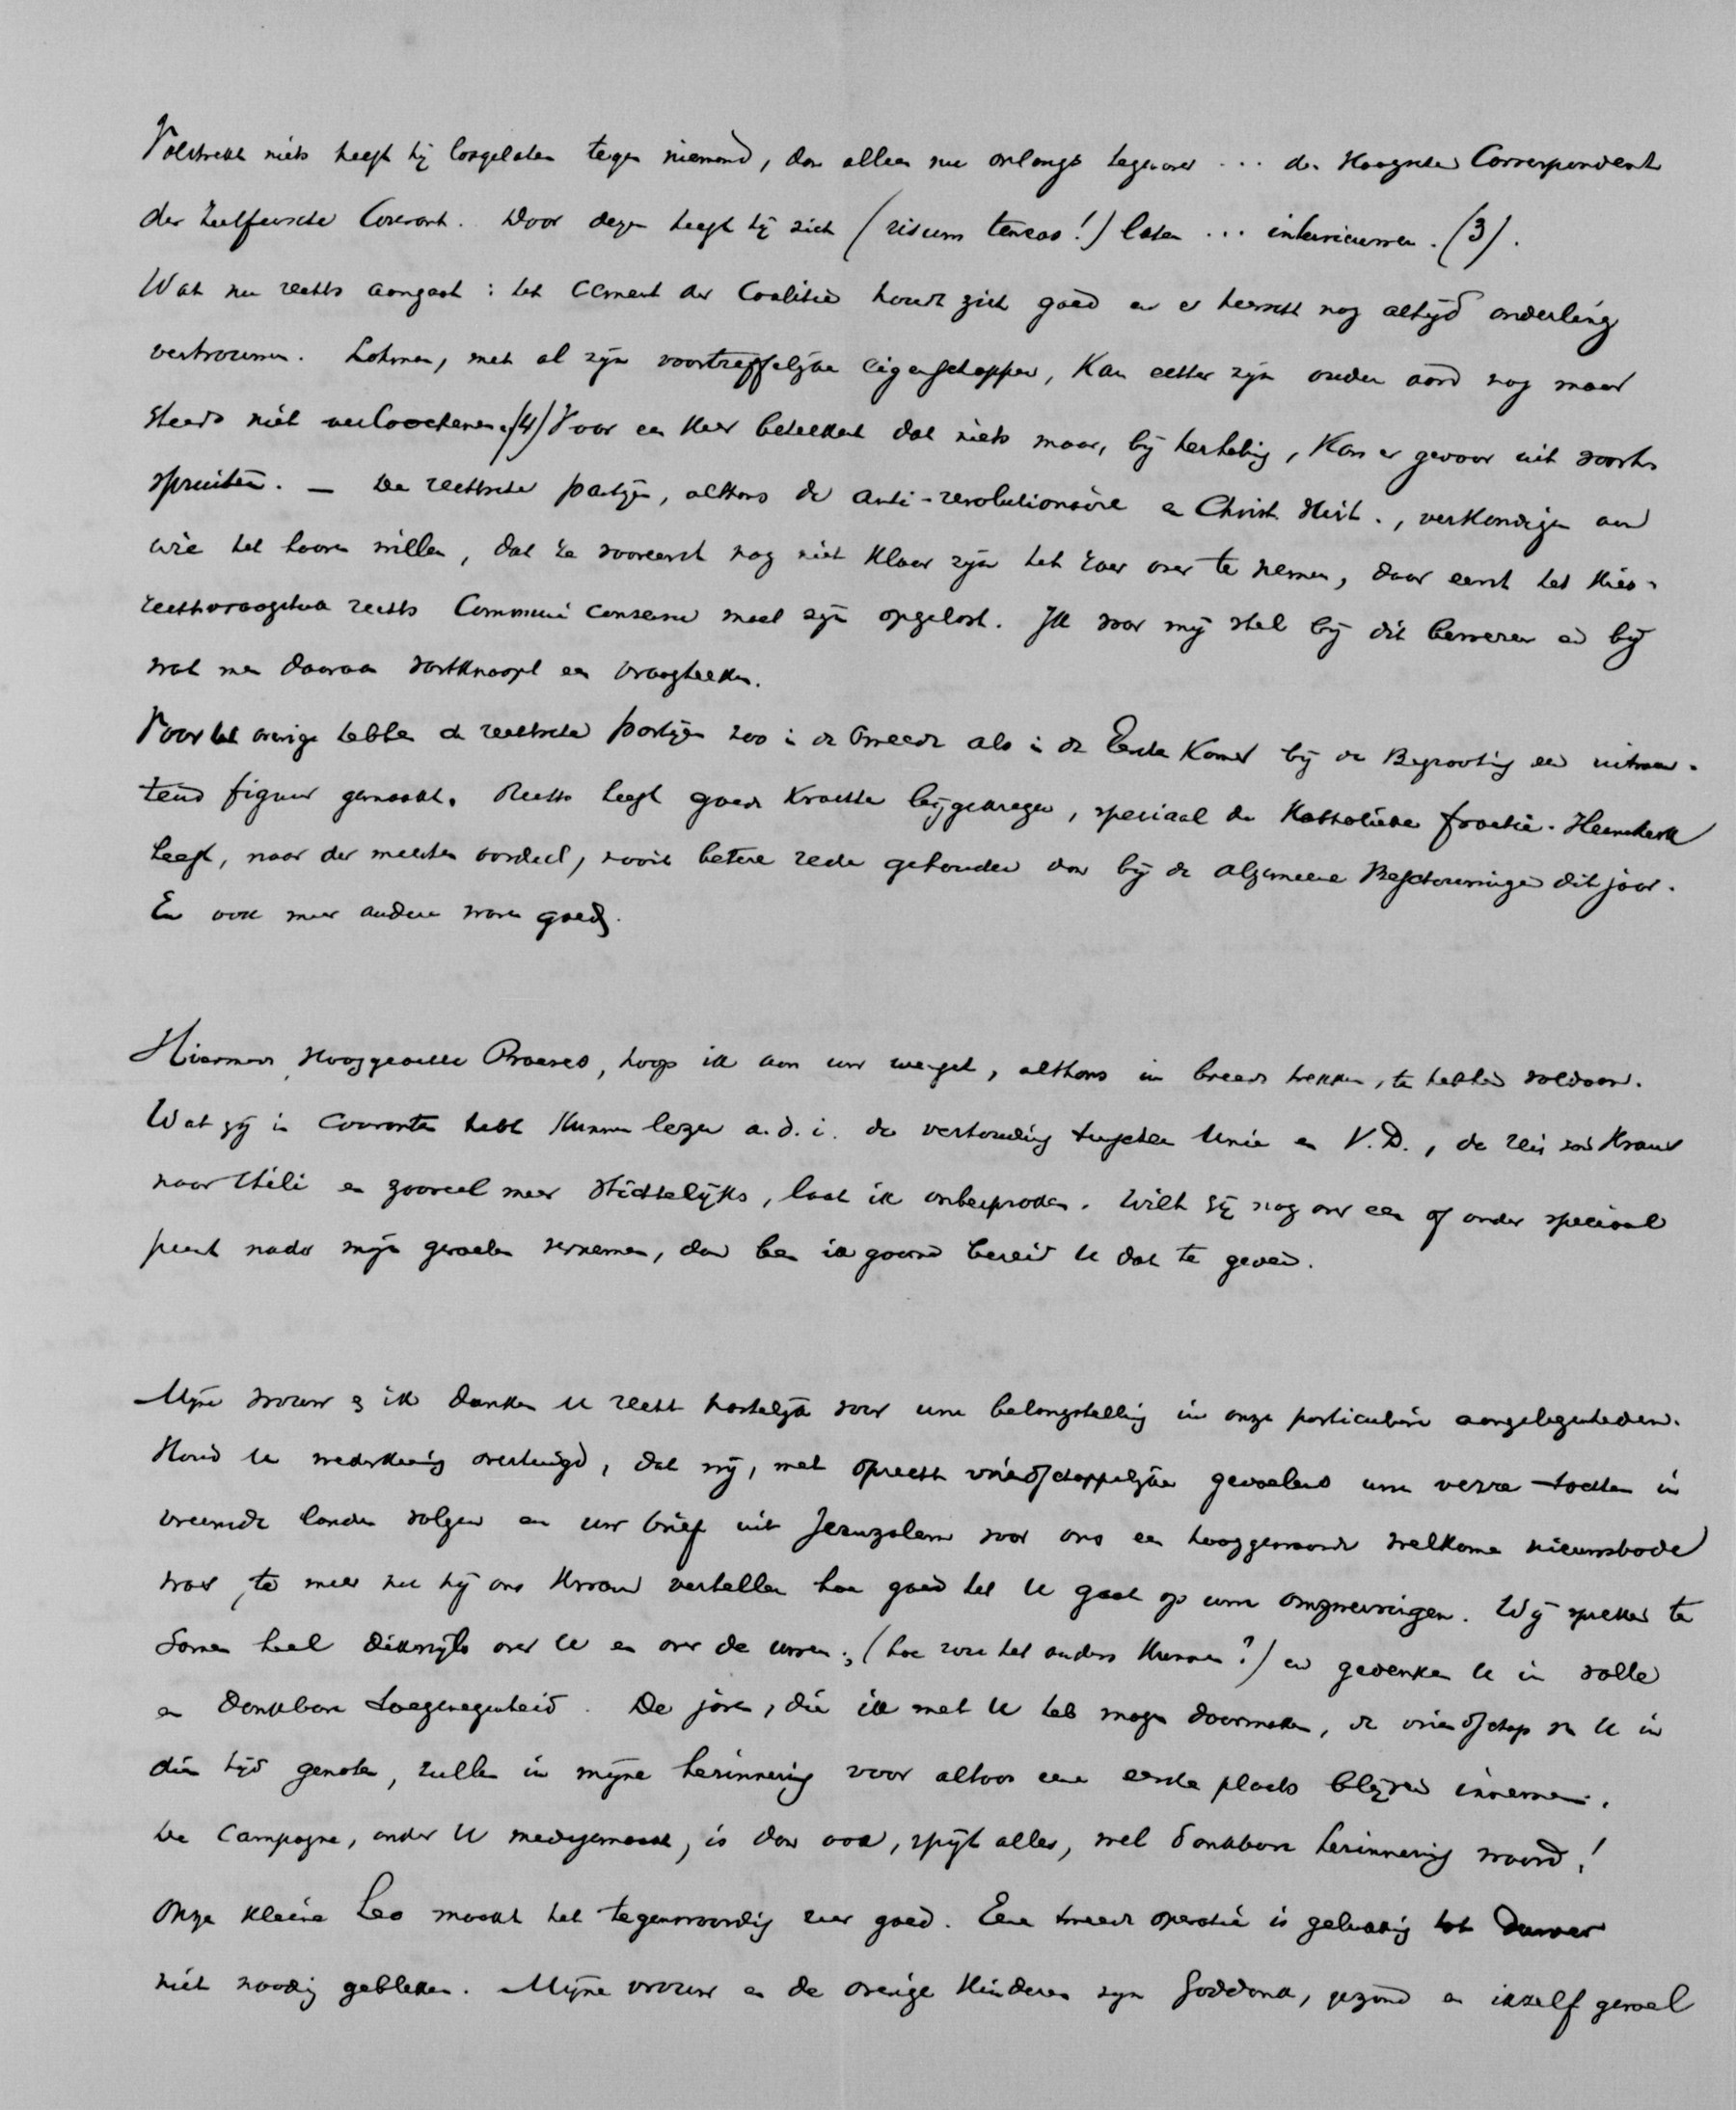 Volstrekt niets heeft hij losgelaten tegen niemand, dan alleen nu onlangs tegenover ... den Haagschen Correspondent
der Zutfensche Courant. Door dezen heeft hij zich (risum teneas!) laten ... interviewen. (3).
Wat nu rechts aangaat: het cement der Coalitie houdt zich goed en er heerscht nog altijd onderling
vertrouwen. Lohman, met al zijn voortreffelijke eigenschappen, kan echter zijn ouden aard nog maar
steeds niet verloochenen. (4) Voor een keer beteekent dat niets maar, bij herhaling, kan er gevaar uit voort-
spruiten. — De rechtsche partijen, althans de anti-revolutionaire en Christ. Hist., verkondigen aan
wie het hooren willen, dat ze vooreerst nog niet klaar zijn het roer over te nemen, daar eerst het kies-
rechtvraagstuk rechts communi consensu moet zijn opgelost. Ik voor mij stel bij dit beweren en bij
wat men daaraan vastknoopt een vraagteeken.
Voor het overige hebben de rechtsche partijen zoo in de Tweede als in de Eerste Kamer bij de Begrooting een uitmun-
tend figuur gemaakt. Rechts heeft goede krachten bijgekregen, speciaal de Katholieke fractie. Heemskerk
heeft, naar der meesten oordeel, nooit betere rede gehouden dan bij de algemeene Beschouwingen dit jaar.
En ook meer andere waren goed.
Hiermee, Hooggeachte Praeses, hoop ik aan uw wensch, althans in breede trekken, te hebben voldaan.
Wat gij in couranten hebt kunnen lezen a.d.i. de verhouding tusschen Unie en V.D., de reis van Kraus
naar Chili en zooveel meer stichtelijks, laat ik onbesproken. Wilt gij nog over een of ander speciaal
punt nader mijn gevoelen vernemen, dan ben ik gaarne bereid U dat te geven.
Mijne vrouw en ik danken U recht hartelijk voor uwe belangstelling in onze particuliere aangelegenheden.
Houd U wederkeerig overtuigd, dat wij, met oprecht vriendschappelijke gevoelens uwe verre tochten in
vreemde landen volgen en uw brief uit Jeruzalem voor ons een hooggewaardeerde welkome nieuwsbode
was, te meer nu hij ons kwam vertellen hoe goed het U gaat op uwe omzwervingen. Wij spreken te
samen heel dikwijls over U en over de uwen; (hoe zou het anders kunnen?) en gedenken U in volle
en dankbare toegenegenheid. De jaren, die ik met U heb mogen doormaken, de vriendschap van U in
dien tijd genoten, zullen in mijne herinnering voor altoos eene eerste plaats blijven innemen.
De Campagne, onder U medegemaakt, is dan ook, spijt alles, wel dankbare herinnering waard!
Onze kleine Leo maakt het tegenwoordig zeer goed. Eene tweede operatie is gelukkig tot dusver
niet noodig gebleken. Mijne vrouw en de overige kinderen zijn Goddank, gezond en ikzelf gevoel